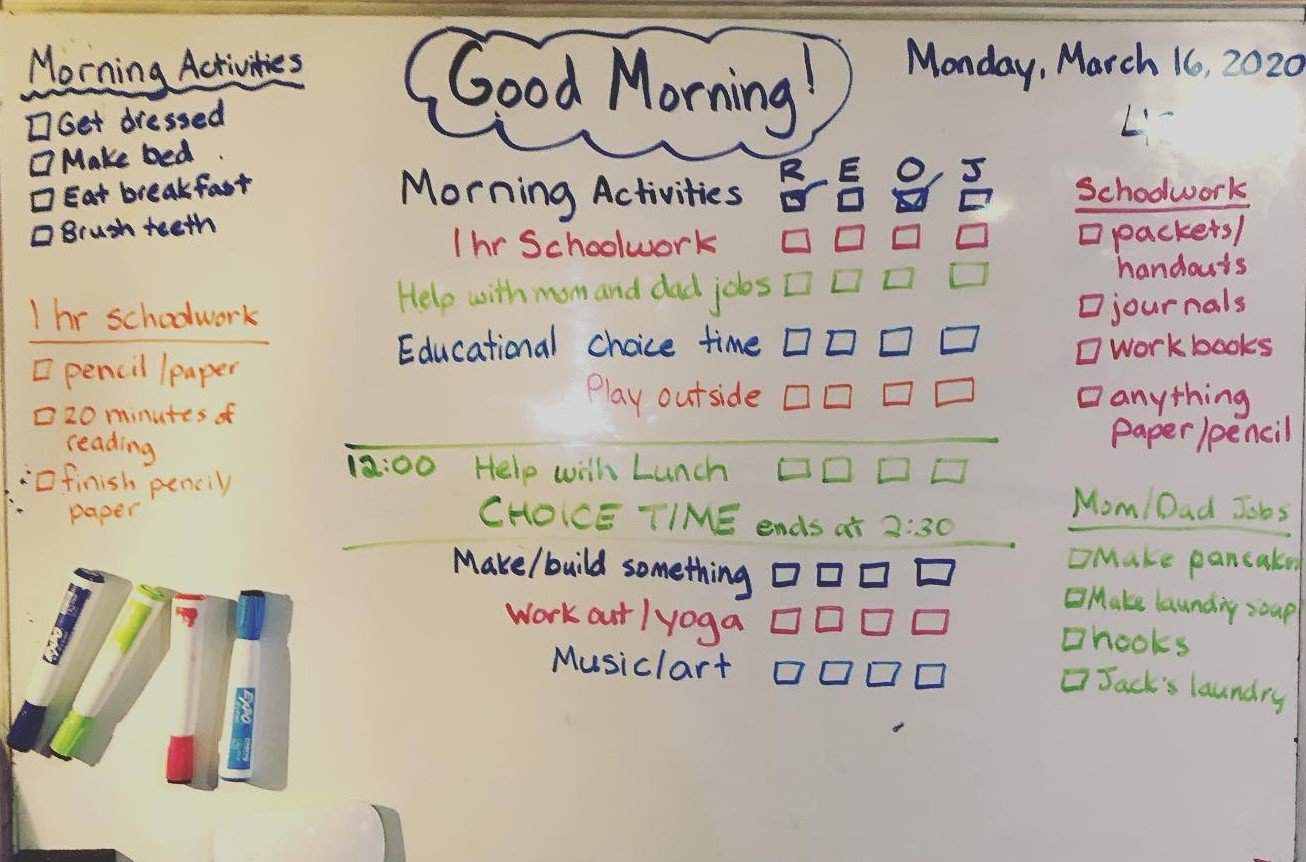 Good Morning!
Monday, March 16, 2020
Morning Activities
Get dressed
Make bed
Eat breakfast
Brush teeth
1 hr schoolwork
pencil/paper
20 minutes of
reading
finish pencil/
paper
R E O J
Morning Activities
1 hr Schoolwork
Help with mom and dad jobs
Educational choice time
Play outside
12:00 Help with Lunch
CHOICE TIME ends at 2:30
Make/build something
Work out/yoga
Music/art
Schoolwork
packets/
handouts
journals
workbooks
anything
paper/pencil
Mom/Dad Jobs
Make pancakes
Make laundry soap
hooks
Jack's laundry
EXPO
EXPO